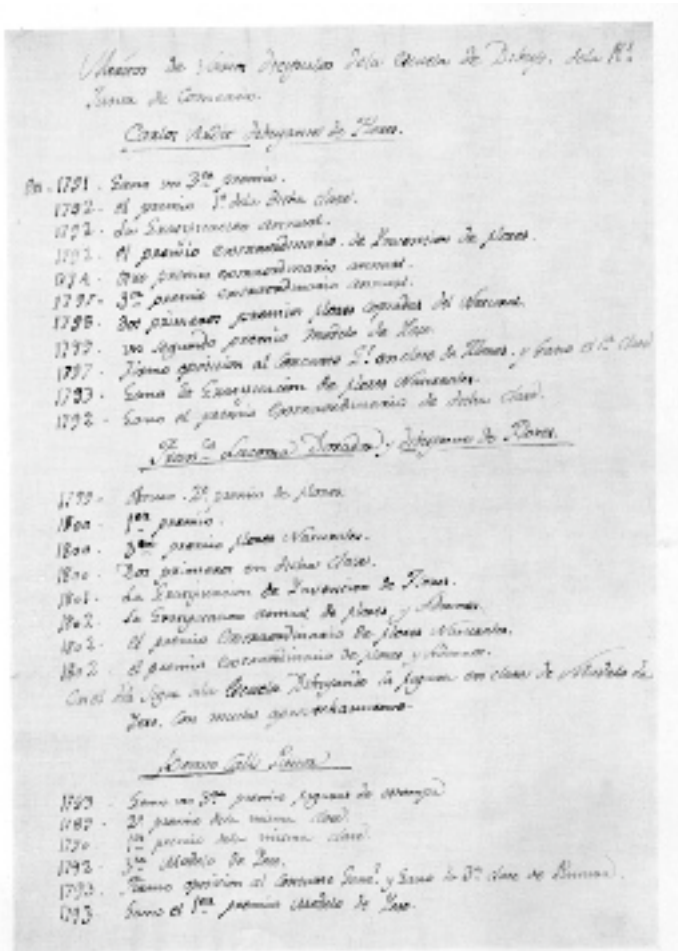 Meritos de varios discipulos dela Escuela de Dibujo, dela Rl.
Junta de Comercio.
Carlos Ardit dibujante de Flores.
En 1791. Gano un 3er. premio.
1792. el premio 1º. dela dicha clase.
1792. La Gratificacion annual.
1792. el premio extraordinario de Invencion de flores.
1794. Otro premio extraordinario annual.
1795. 3er. premio extraordinario annual.
1798. Dos primeros premios flores copiadas del Natural.
1799. un segundo premio Modelo de Yeso.
1797. Firmo oposicion al Concurso Gl. en clase de Flores, y Gano el 1º.
1793. Gano la Gratificacion de flores Naturales.
1792. Gano el premio Extraordinario de dicha clase.
Franco. Lacoma Dorador, y dibujante de Flores.
1799. 2º. premio de flores.
1800. 1er. premio.
1800. 3er. premio flores Naturales.
1800. Dos primeros en dicha clase.
1801. La Gratificacion de Invencion de Flores.
1802. La Gratificacion annual de flores, y Adornos.
1802. el premio Extraordinario de flores Naturales.
1802. el premio extraordinario de flores y Adornos.
En el dia sigue ala Escuela Dibujando la figura en clase de Modelo de
Yeso, con mucho aprovechamiento.
Calls Pintor
1789. Gano un 3er. premio figuras de estampa
1789. 2º. premio dela misma clase.
1790. 1er. premio dela misma clase.
1792. 3er. Modelo de Yeso.
1793. Firmo oposicion al Concurso Genl. y Gano la 3a. clase de Pintura.
1793. Gano el 1er. premio Modelo de Yeso.